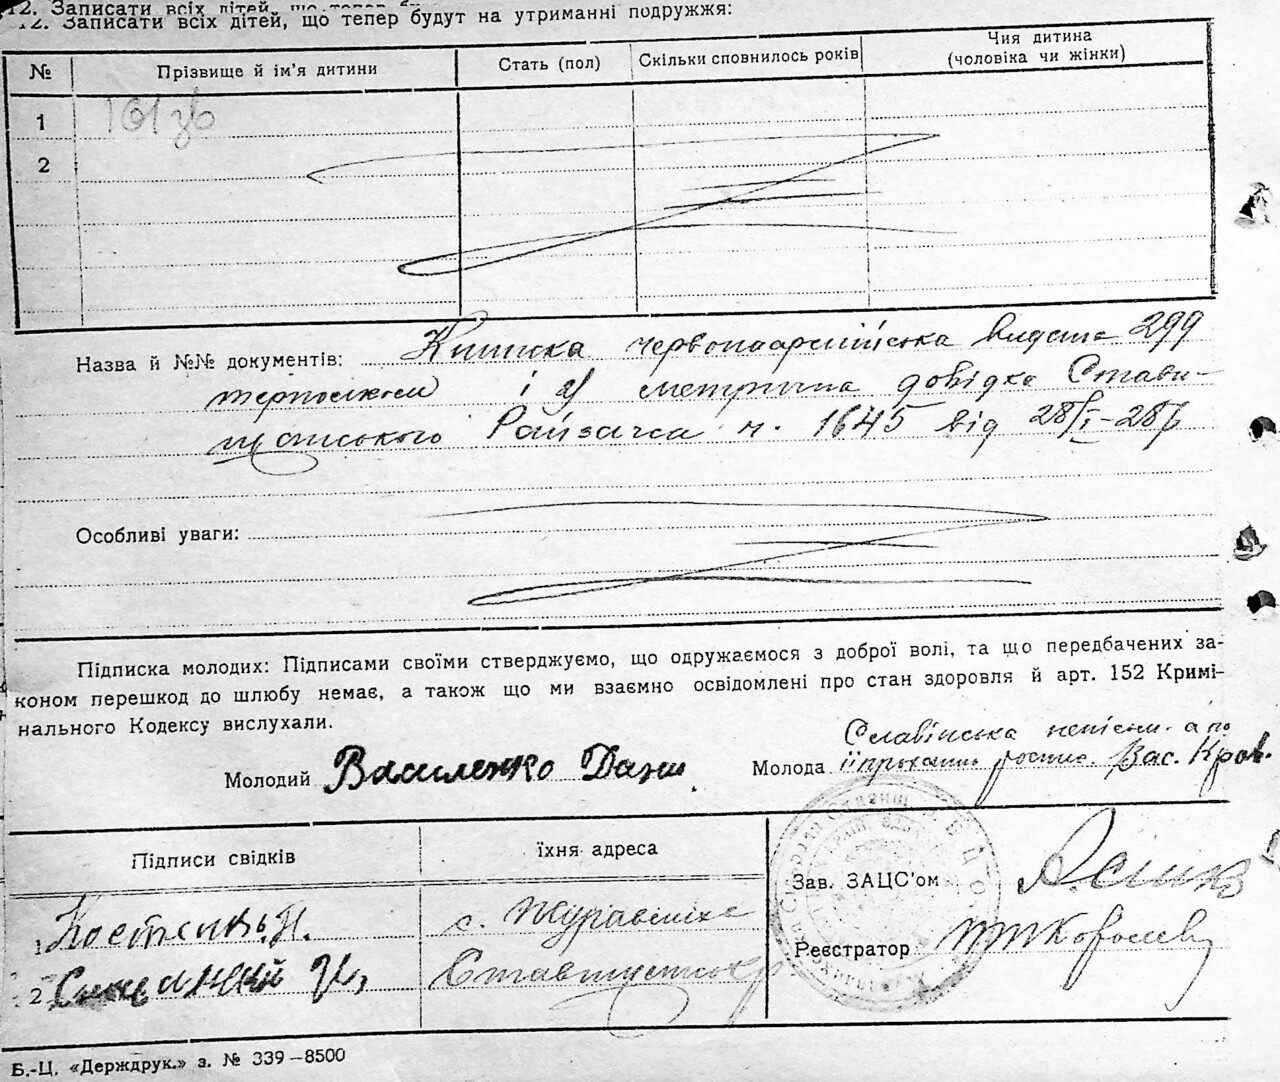 12. Записати всіх дітей, що тепер
12. Записати всіх дітей, що тепер будут на утриманні подружжя:
№ Прізвище й ім'я дитини Стать (пол) Скільки сповнилось років Чия дитина (чоловіка чи жінки)
1
2
Назва й №№ документів: Книжка червоноармійська видата 299
і 2) метрична довідка Стави-
щанського Райзагса ч. 1645 від 28/I-28р
Особливі уваги:
Підписка молодих: Підписами своїми стверджуємо, що одружаємося з доброї волі, та що передбачених за-
коном перешкод до шлюбу немає, а також що ми взаємно освідомлені про стан здоровля й арт. 152 Кримі-
нального Кодексу вислухали.
Славінська неписьм. а по
Молодий Василенко Дани Молода її проханню роспис. Вас. Крав.
Підписи свідків їхня адреса
Зав. ЗАЦС'ом
1 с. Журавлиха
Реєстратор Королев
2
Б.-Ц. «Держдрук.» з. № 339–8500